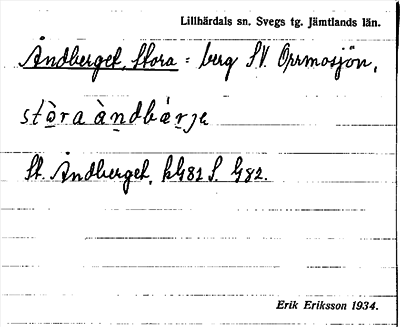 Lillhärdals sn. Svegs tg. Jämtlands län.
Åndberget, Stora = berg S.V. Orrmosjön,
stò̱ra àṉdbæ̀ṟje
St. Åndberget, kG82 S. G82.
Erik Eriksson 1934.